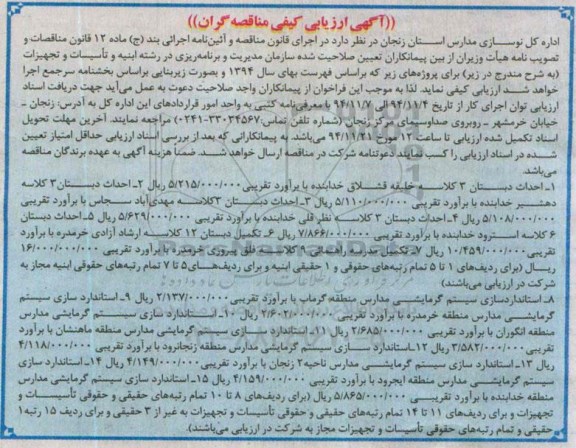 ((آگهی ارزیابی کیفی مناقصه گران))
اداره کل نوسازی مدارس استان زنجان در نظر دارد در اجرای قانون مناقصه و آئین‌نامه اجرائی بند (ج) ماده ۱۲ قانون مناقصات و
تصویب نامه هیأت وزیران از بین پیمانکاران تعیین صلاحیت شده سازمان مدیریت و برنامه‌ریزی در رشته ابنیه و تأسیسات و تجهیزات
(به شرح مندرج در زیر) برای پروژه‌های زیر که براساس فهرست بهای سال ۱۳۹۴ و بصورت زیربنایی براساس بخشنامه سرجمع اجرا
خواهد شد ارزیابی کیفی نماید. لذا به موجب این فراخوان از پیمانکاران واجد صلاحیت دعوت به عمل می‌آید جهت دریافت اسناد
ارزیابی توان اجرای کار از تاریخ ۹۴/۱۱/۴ الی ۹۴/۱۱/۷ با معرفی‌نامه کتبی به واحد امور قراردادهای این اداره کل به آدرس: زنجان ـ
خیابان خرمشهر ـ روبروی صداوسیمای مرکز زنجان (شماره تلفن تماس: ۳۳۰۳۴۵۶۷-۰۲۴۱) مراجعه نمایند. آخرین مهلت تحویل
اسناد تکمیل شده ارزیابی تا ساعت ۱۴ مورخ ۹۴/۱۱/۲۱ می‌باشد به پیمانکارانی که بعد از بررسی اسناد ارزیابی حداقل امتیاز تعیین
شده در اسناد ارزیابی را کسب نمایند دعوتنامه شرکت در مناقصه ارسال خواهد شد. ضمناً هزینه آگهی به عهده برندگان مناقصه
می‌باشد.
۱ـ احداث دبستان ۳ کلاسه خلیفه قشلاق خدابنده با برآورد تقریبی ۵/۲۱۵/۰۰۰/۰۰۰ ریال ۲ـ احداث دبستان ۳ کلاسه
دهشیر خدابنده با برآورد تقریبی ۵/۱۱۰/۰۰۰/۰۰۰ ریال ۳ـ احداث دبستان ۳ کلاسه مهدی‌آباد سجاس با برآورد تقریبی
۵/۱۰۸/۰۰۰/۰۰۰ ریال ۴ـ احداث دبستان ۳ کلاسه نظر قلی خدابنده با برآورد تقریبی ۵/۶۲۹/۰۰۰/۰۰۰ ریال ۵ـ احداث دبستان
۶ کلاسه استرود خدابنده با برآورد تقریبی ۷/۸۶۶/۰۰۰/۰۰۰ ریال ۶ـ تکمیل دبستان ۱۲ کلاسه ارشاد آزادی خرمدره با برآورد
تقریبی ۱۰/۴۵۹/۰۰۰/۰۰۰ ریال ۷ـ تکمیل مدرسه راهنمائی ۹ کلاسه خلق پیروزی خرمدره با برآورد تقریبی ۱۶/۰۰۰/۰۰۰/۰۰۰
ریال (برای ردیف‌های ۱ تا ۵ تمام رتبه‌های حقوقی و ۱ حقیقی ابنیه و برای ردیف‌های ۵ تا ۷ تمام رتبه‌های حقوقی ابنیه مجاز به
شرکت در ارزیابی می‌باشند)
۸ـ استانداردسازی سیستم گرمایشی مدارس منطقه گرماب با برآورد تقریبی ۲/۱۳۷/۰۰۰/۰۰۰ ریال ۹ـ استاندارد سازی سیستم
گرمایشی مدارس منطقه خرمدره با برآورد تقریبی ۲/۶۰۲/۰۰۰/۰۰۰ ریال ۱۰ـ استاندارد سازی سیستم گرمایشی مدارس
منطقه انگوران با برآورد تقریبی ۲/۶۸۵/۰۰۰/۰۰۰ ریال ۱۱ـ استاندارد سازی سیستم گرمایشی مدارس منطقه ماهنشان با برآورد
تقریبی ۳/۵۸۲/۰۰۰/۰۰۰ ریال ۱۲ـ استاندارد سازی سیستم گرمایشی مدارس منطقه زنجانرود با برآورد تقریبی ۴/۱۱۸/۰۰۰/۰۰۰
ریال ۱۳ـ استاندارد سازی سیستم گرمایشی مدارس ناحیه ۲ زنجان با برآورد تقریبی ۴/۱۴۹/۰۰۰/۰۰۰ ریال ۱۴ـ استاندارد سازی
سیستم گرمایشی مدارس منطقه ایجرود با برآورد تقریبی ۴/۱۵۹/۰۰۰/۰۰۰ ریال ۱۵ـ استاندارد سازی سیستم گرمایشی مدارس
منطقه خدابنده با برآورد تقریبی ۵/۸۶۵/۰۰۰/۰۰۰ ریال (برای ردیف‌های ۸ تا ۱۰ تمام رتبه‌های حقیقی و حقوقی تأسیسات و
تجهیزات و برای ردیف‌های ۱۱ تا ۱۴ تمام رتبه‌های حقیقی و حقوقی تأسیسات و تجهیزات به غیر از ۳ حقیقی و برای ردیف ۱۵ رتبه ۱
حقیقی و تمام رتبه‌های حقوقی تأسیسات و تجهیزات مجاز به شرکت در ارزیابی می‌باشند).